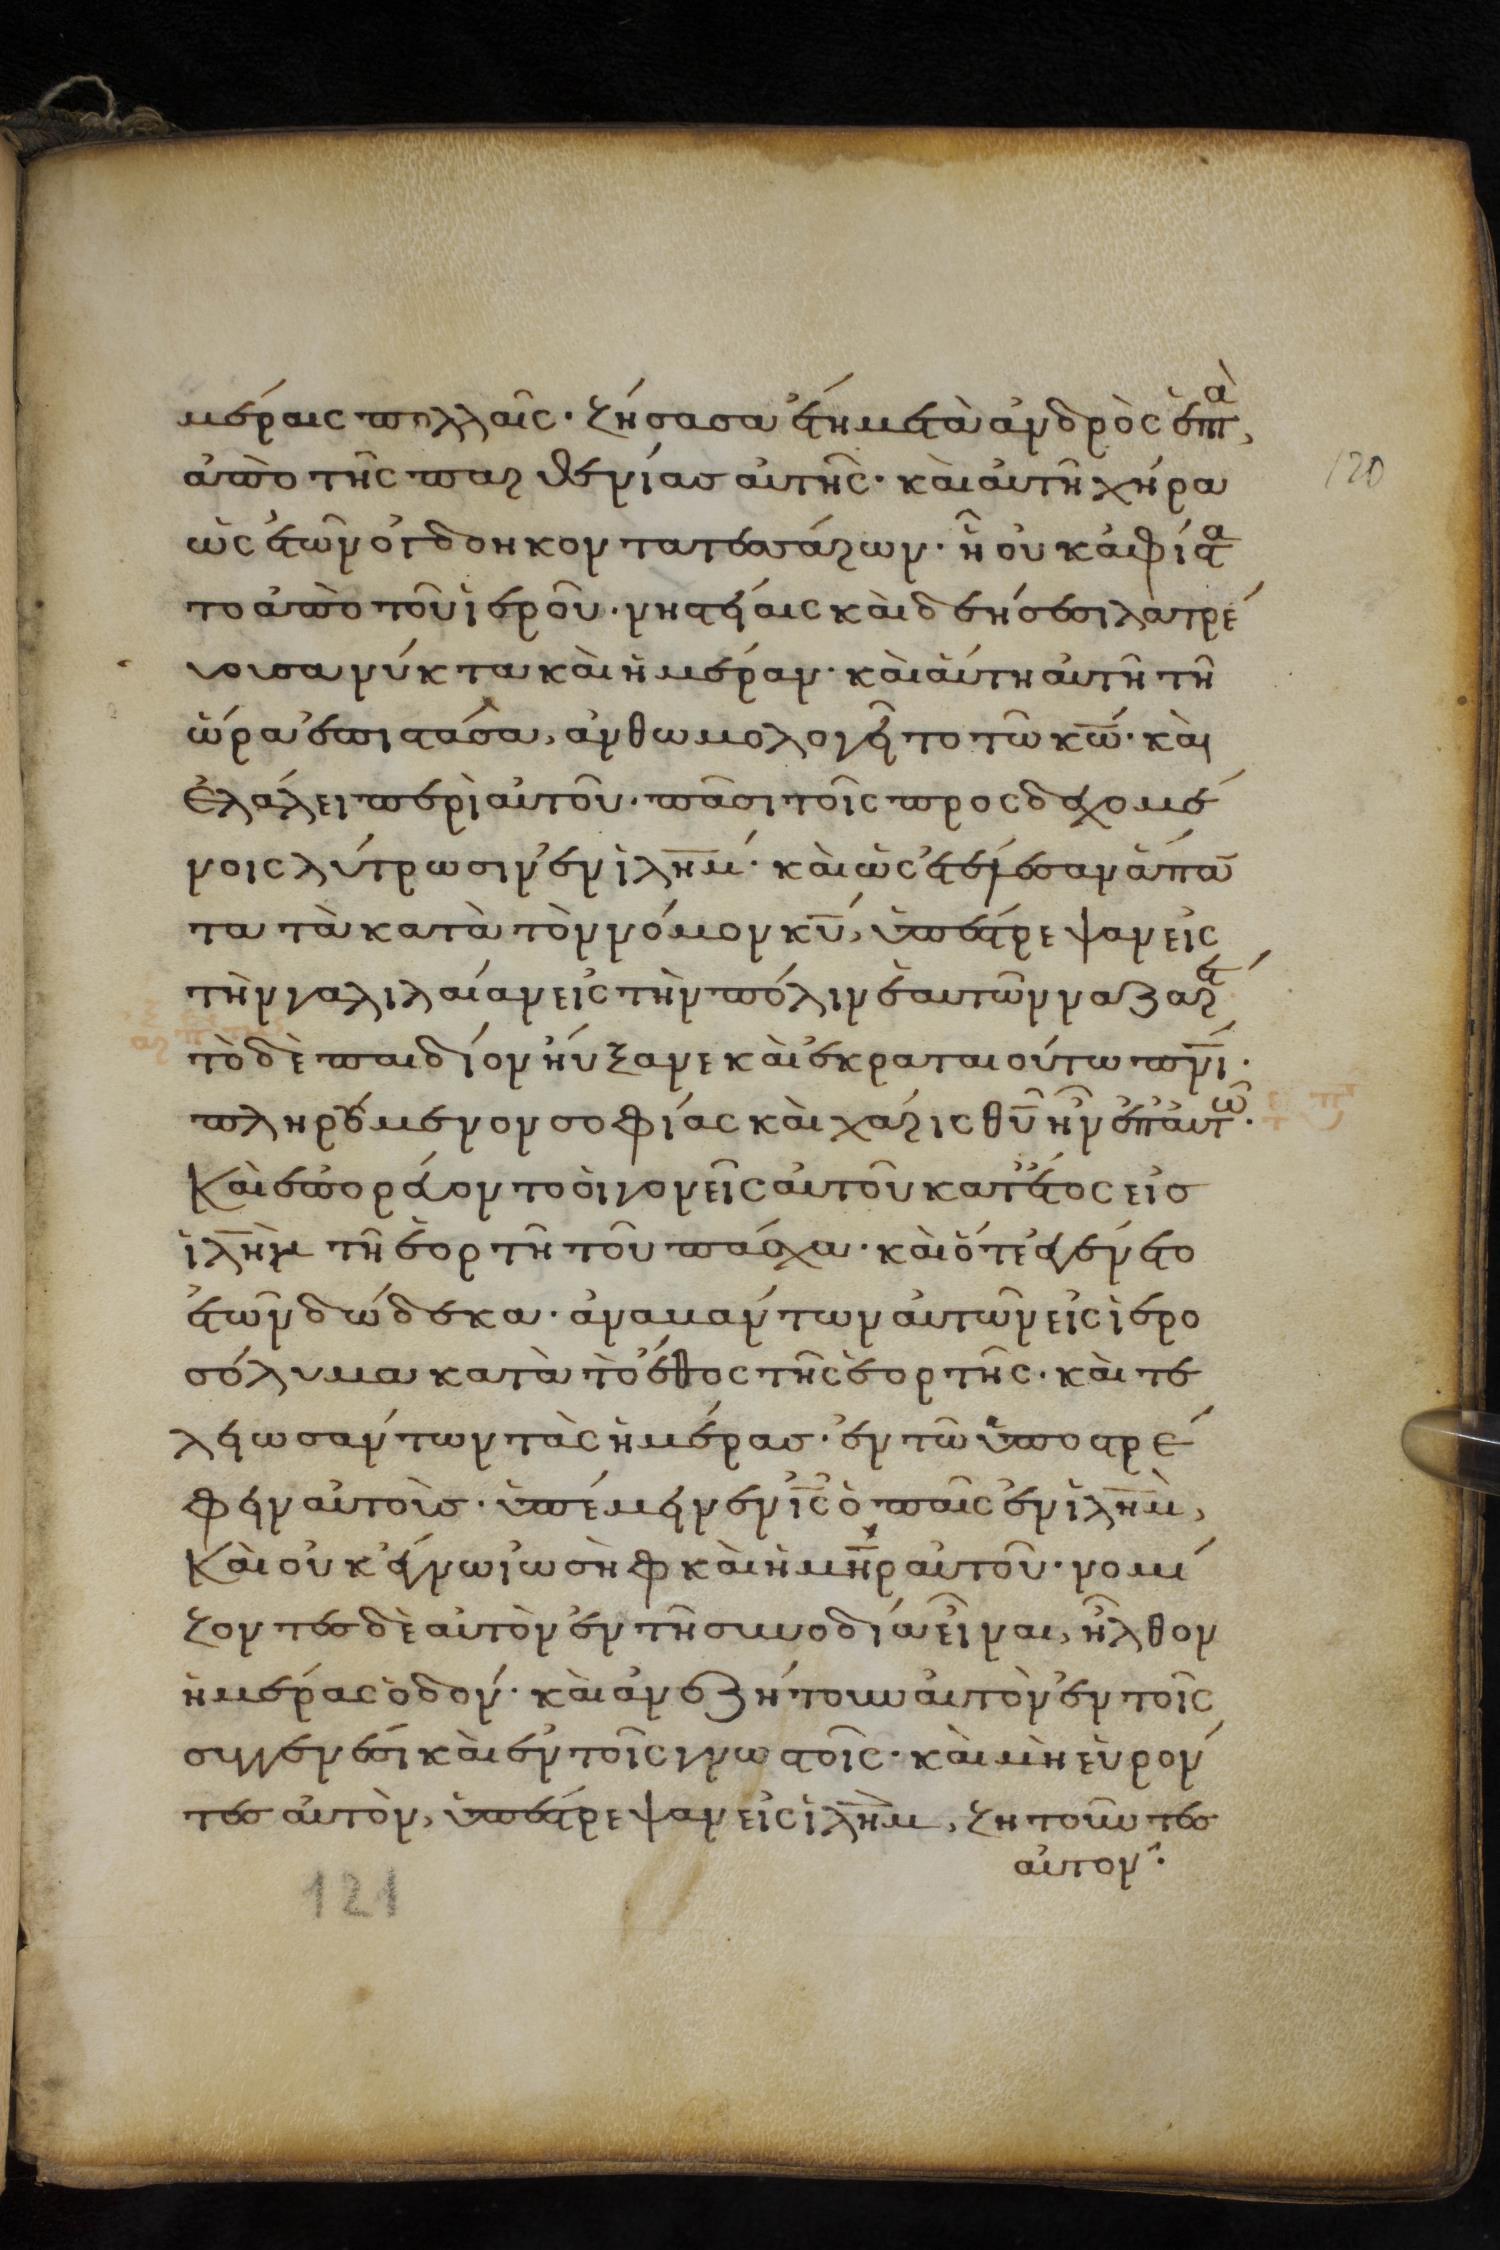 μέραις πολλαῖς· ζήσασα ἔτη μετὰ ἀνδρὸς ἑπτὰ,
120
ἀπὸ τῆς παρθενίας αὐτῆς· καὶ αὐτὴ χήρα
ὡς ἐτῶν ὀγδοηκοντατεσσάρων· ἣ οὐκ ἀφίστα
το ἀπὸ τοῦ ἱεροῦ· νηστείαις καὶ δεήσεσι λατρεύ
ουσα νύκτα καὶ ἡμέραν· καὶ αὕτη αὐτῇ τῇ
ὥρα ἐπιστᾶσα, ἀνθωμολογεῖτο τῷ κῳ· καὶ
ἐλάλει περὶ αὐτοῦ· πᾶσι τοῖς προσδεχομέ
νοις λύτρωσιν ἐν ἱλημ· καὶ ὡς ἐτέλεσαν ἅπαν
τα τὰ κατὰ τὸν νόμον κυ, ὑπέστρεψαν εἰς
τὴν γαλιλαίαν εἰς τὴν πόλιν ἑαυτῶν ναζαρέτ
τὸ δὲ παιδίον ηὔξανε καὶ ἐκραταιοῦτο πνι·
πληρούμενον σοφίας καὶ χάρις θυ ἦν ἐπ' αὐτῷ·
Καὶ ἐπορεύοντο οἱ γονεῖς αὐτοῦ κατ' ἔτος εἰς
ἱλημ τῇ ἑορτῇ τοῦ πάσχα· καὶ ὅτε ἐγένετο
ἐτῶν δώδεκα· ἀναβάντων αὐτῶν εἰς ἱερο
σόλυμα κατὰ τὸ ἔθος τῆς ἑορτῆς· καὶ τε
λειωσάντων τὰς ἡμέρας· ἐν τῷ ὑποστρέ
φειν αὐτοὺς· ὑπέμεινεν ις ὁ παῖς ἐν ἱλημ,
Καὶ οὐκ ἔγνω ἰωσὴφ καὶ ἡ μηρ αὐτοῦ· νομί
ζοντες δὲ αὐτὸν ἐν τῇ συνοδίᾳ εἶναι, ἦλθον
ἡμέρας ὁδόν· καὶ ἀνεζήτουν αὐτὸν ἐν τοῖς
συγγενέσι καὶ ἐν τοῖς γνωστοῖς· καὶ μὴ εὑρόν
τες αὐτὸν, ὑπέστρεψαν εἰς ἱλημ, ζητοῦντες
αὐτον·
121